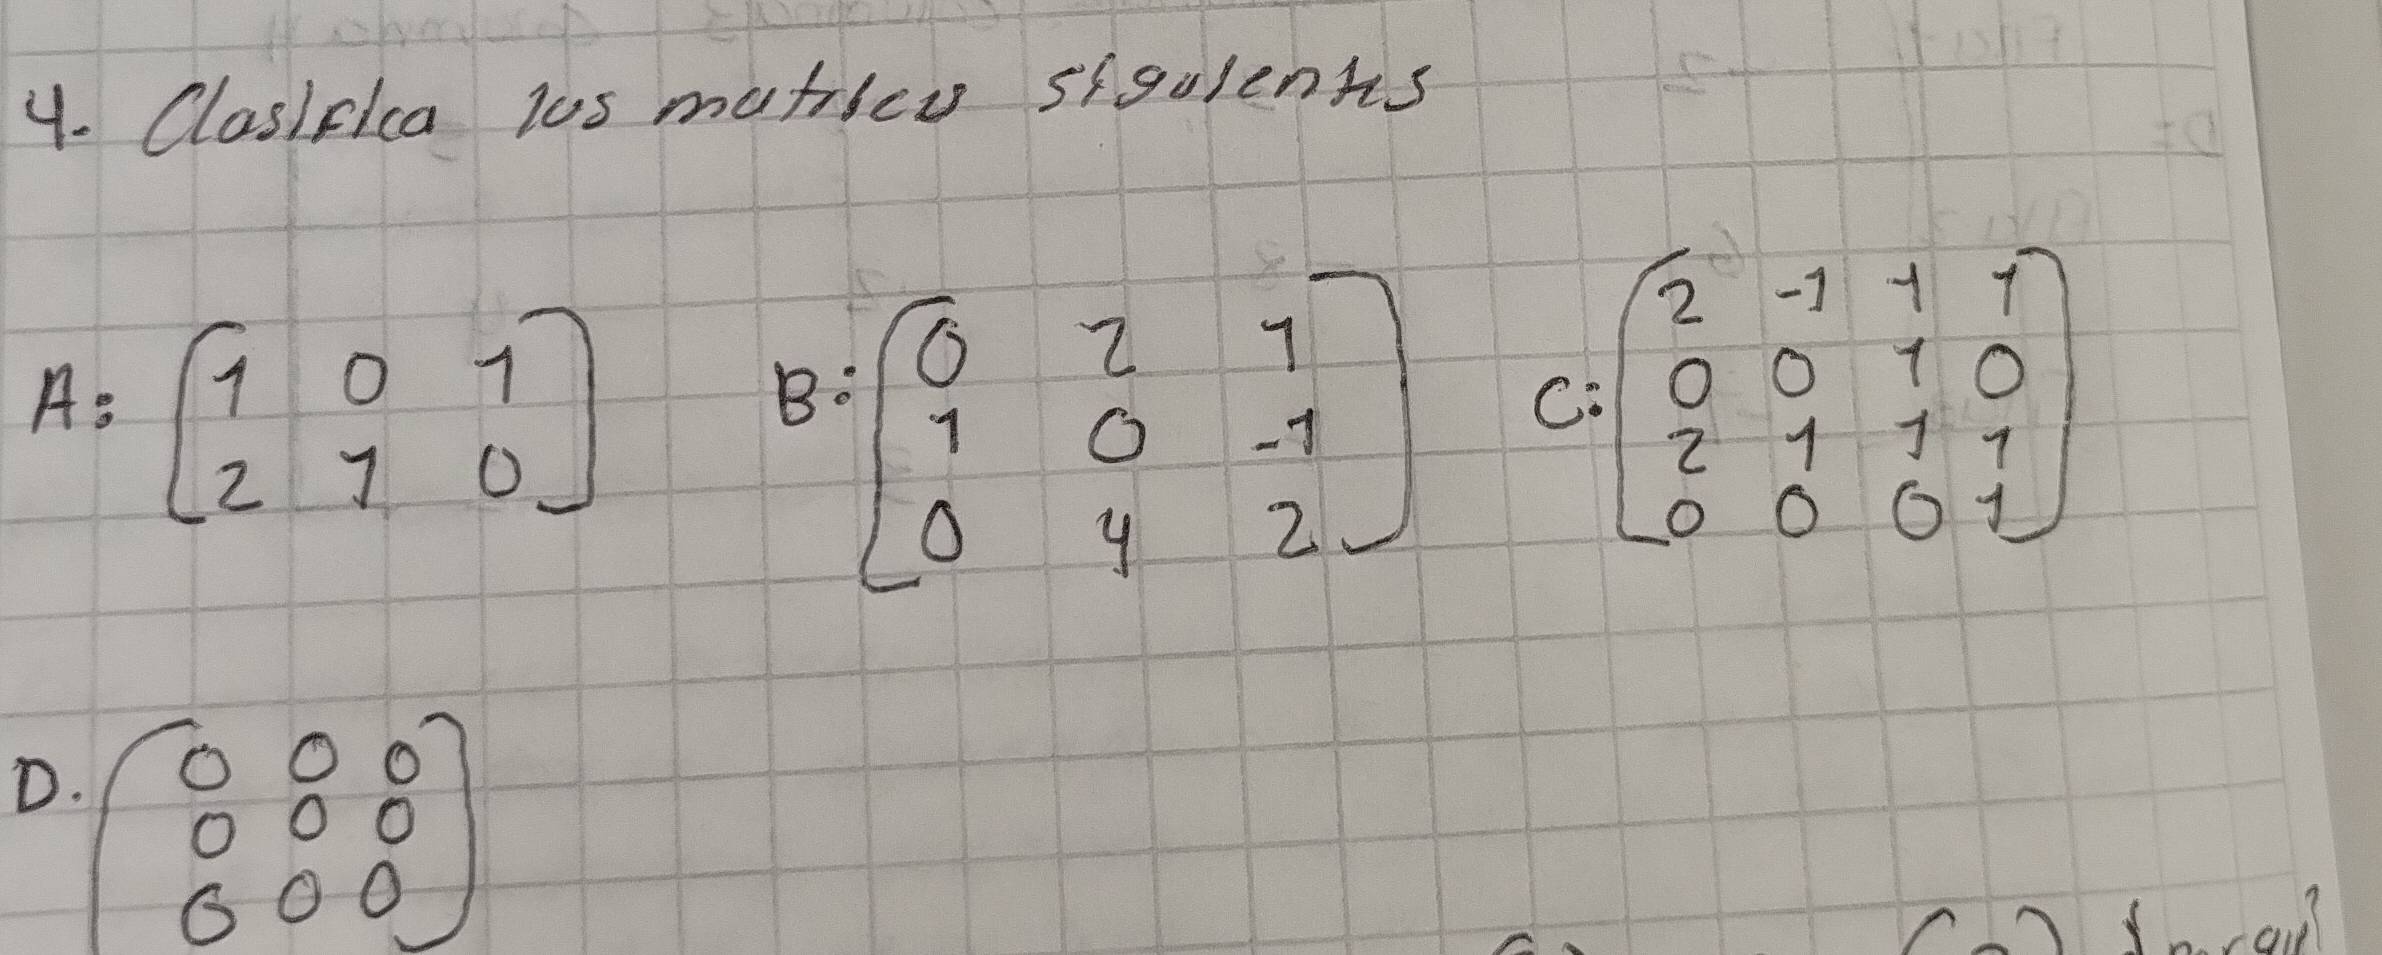 4. Clasifica las matrices siguientes
A: [1 0 1
2 1 0]
B: [0 2 1
1 0 -1
0 4 2]
C: [2 -1 1 1
0 0 1 0
2 1 1 1
0 0 0 1]
D. [0 0 0
0 0 0
0 0 0]